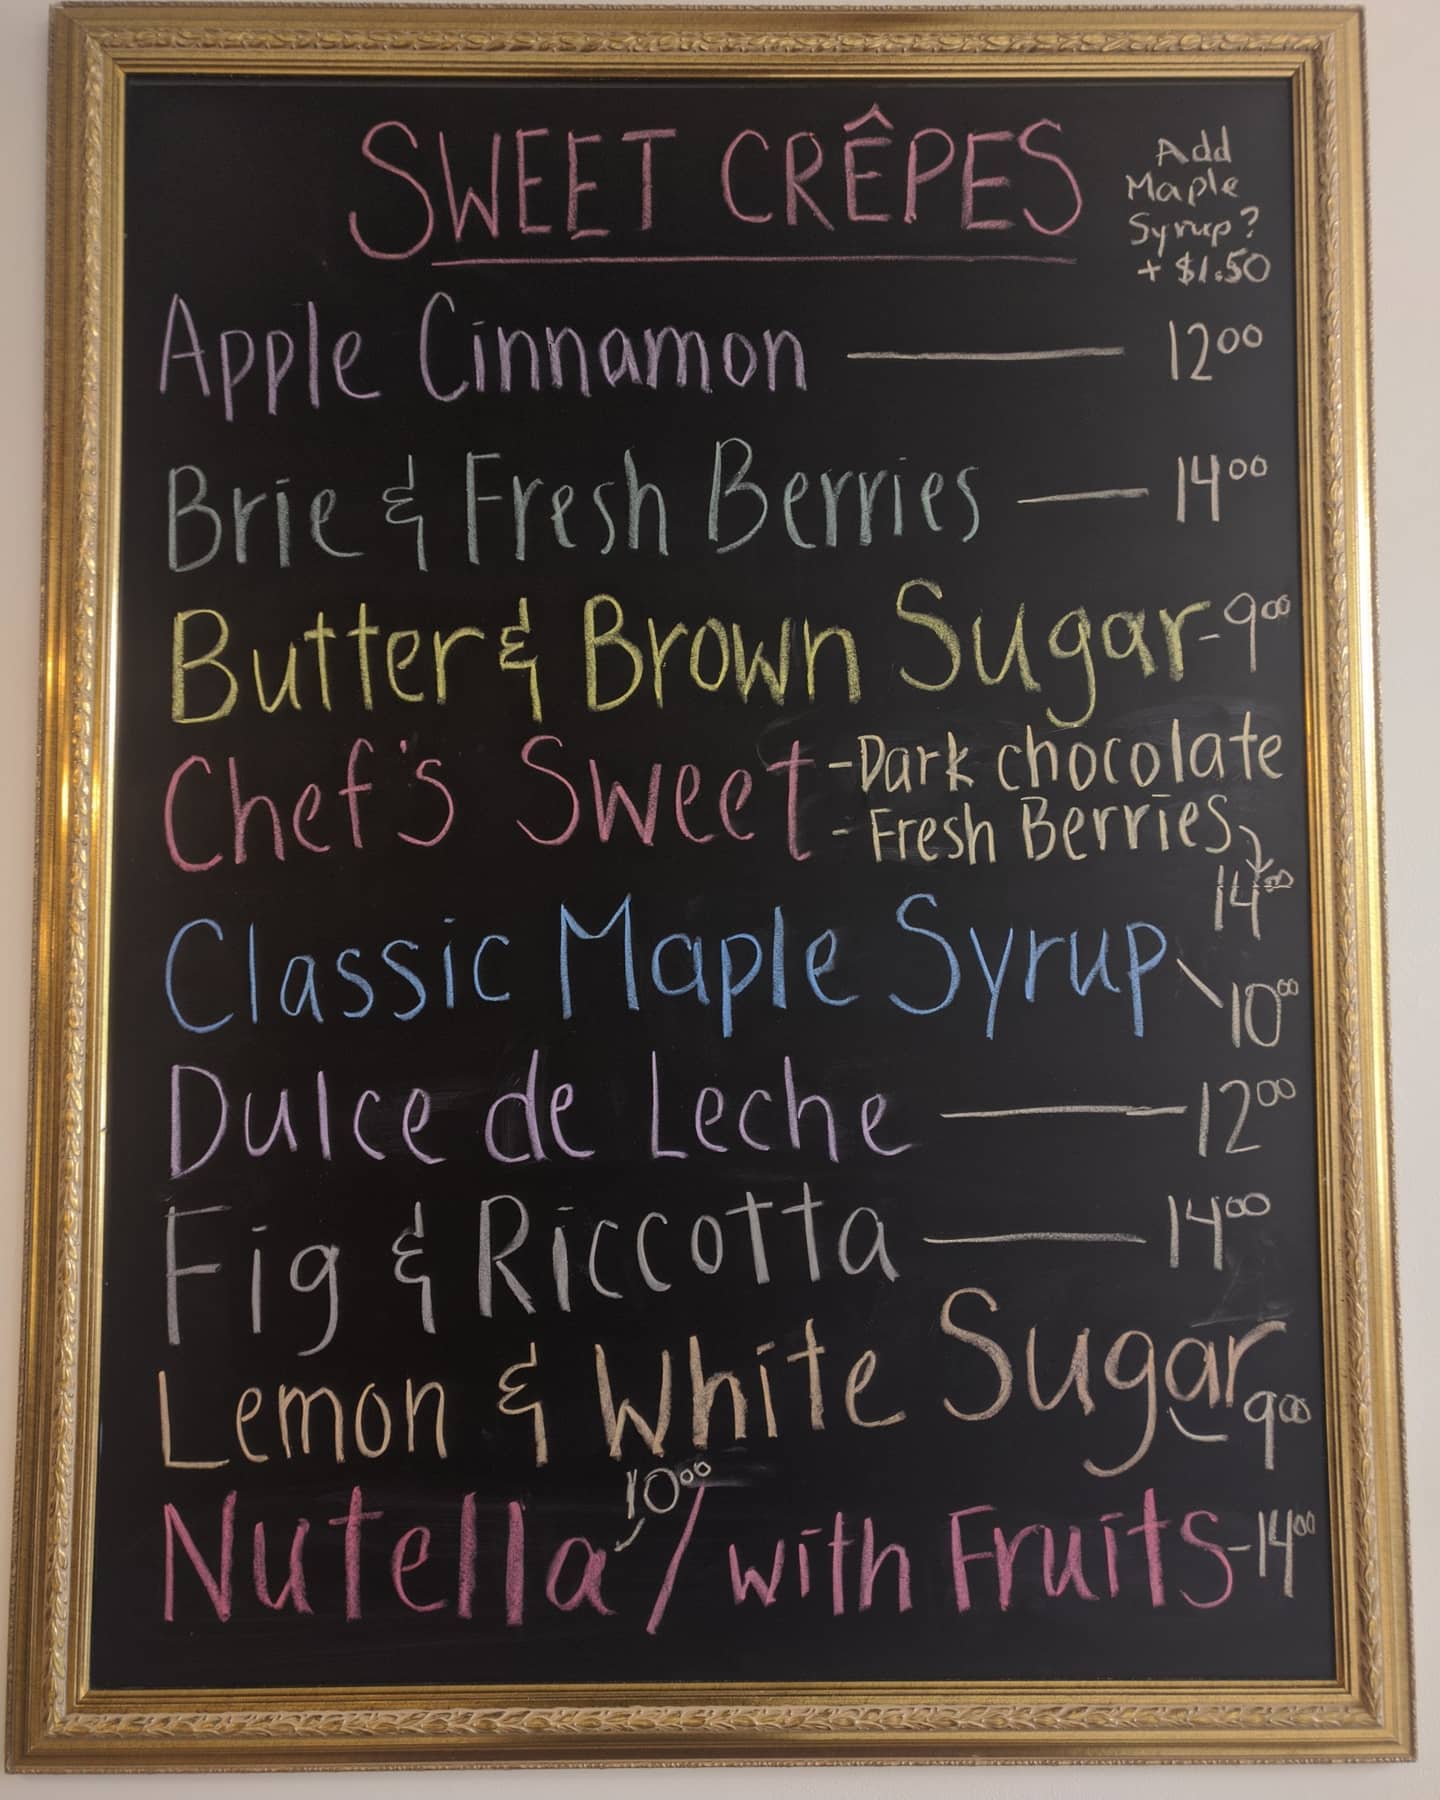 SWEET CRÊPES
Add
Maple
Syrup?
+ $1.50
Apple Cinnamon — 12 00
Brie & Fresh Berries — 14 00
Butter & Brown Sugar - 9 00
Chef's Sweet - Dark chocolate
- Fresh Berries
14 00
Classic Maple Syrup \ 10 00
Dulce de Leche — 12 00
Fig & Riccotta — 14 00
Lemon & White Sugar 9 00
10 00
Nutella / with Fruits - 14 00